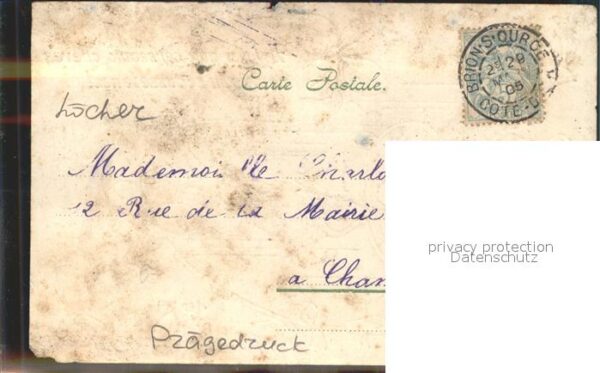 BRION-S-OURCE
2E 29
05
COTE-D
Carte Postale.
Löcher
Mademoiselle Charlo
12 Rue de la Mairie
a Chan
Prägedruck
privacy protection
Datenschutz